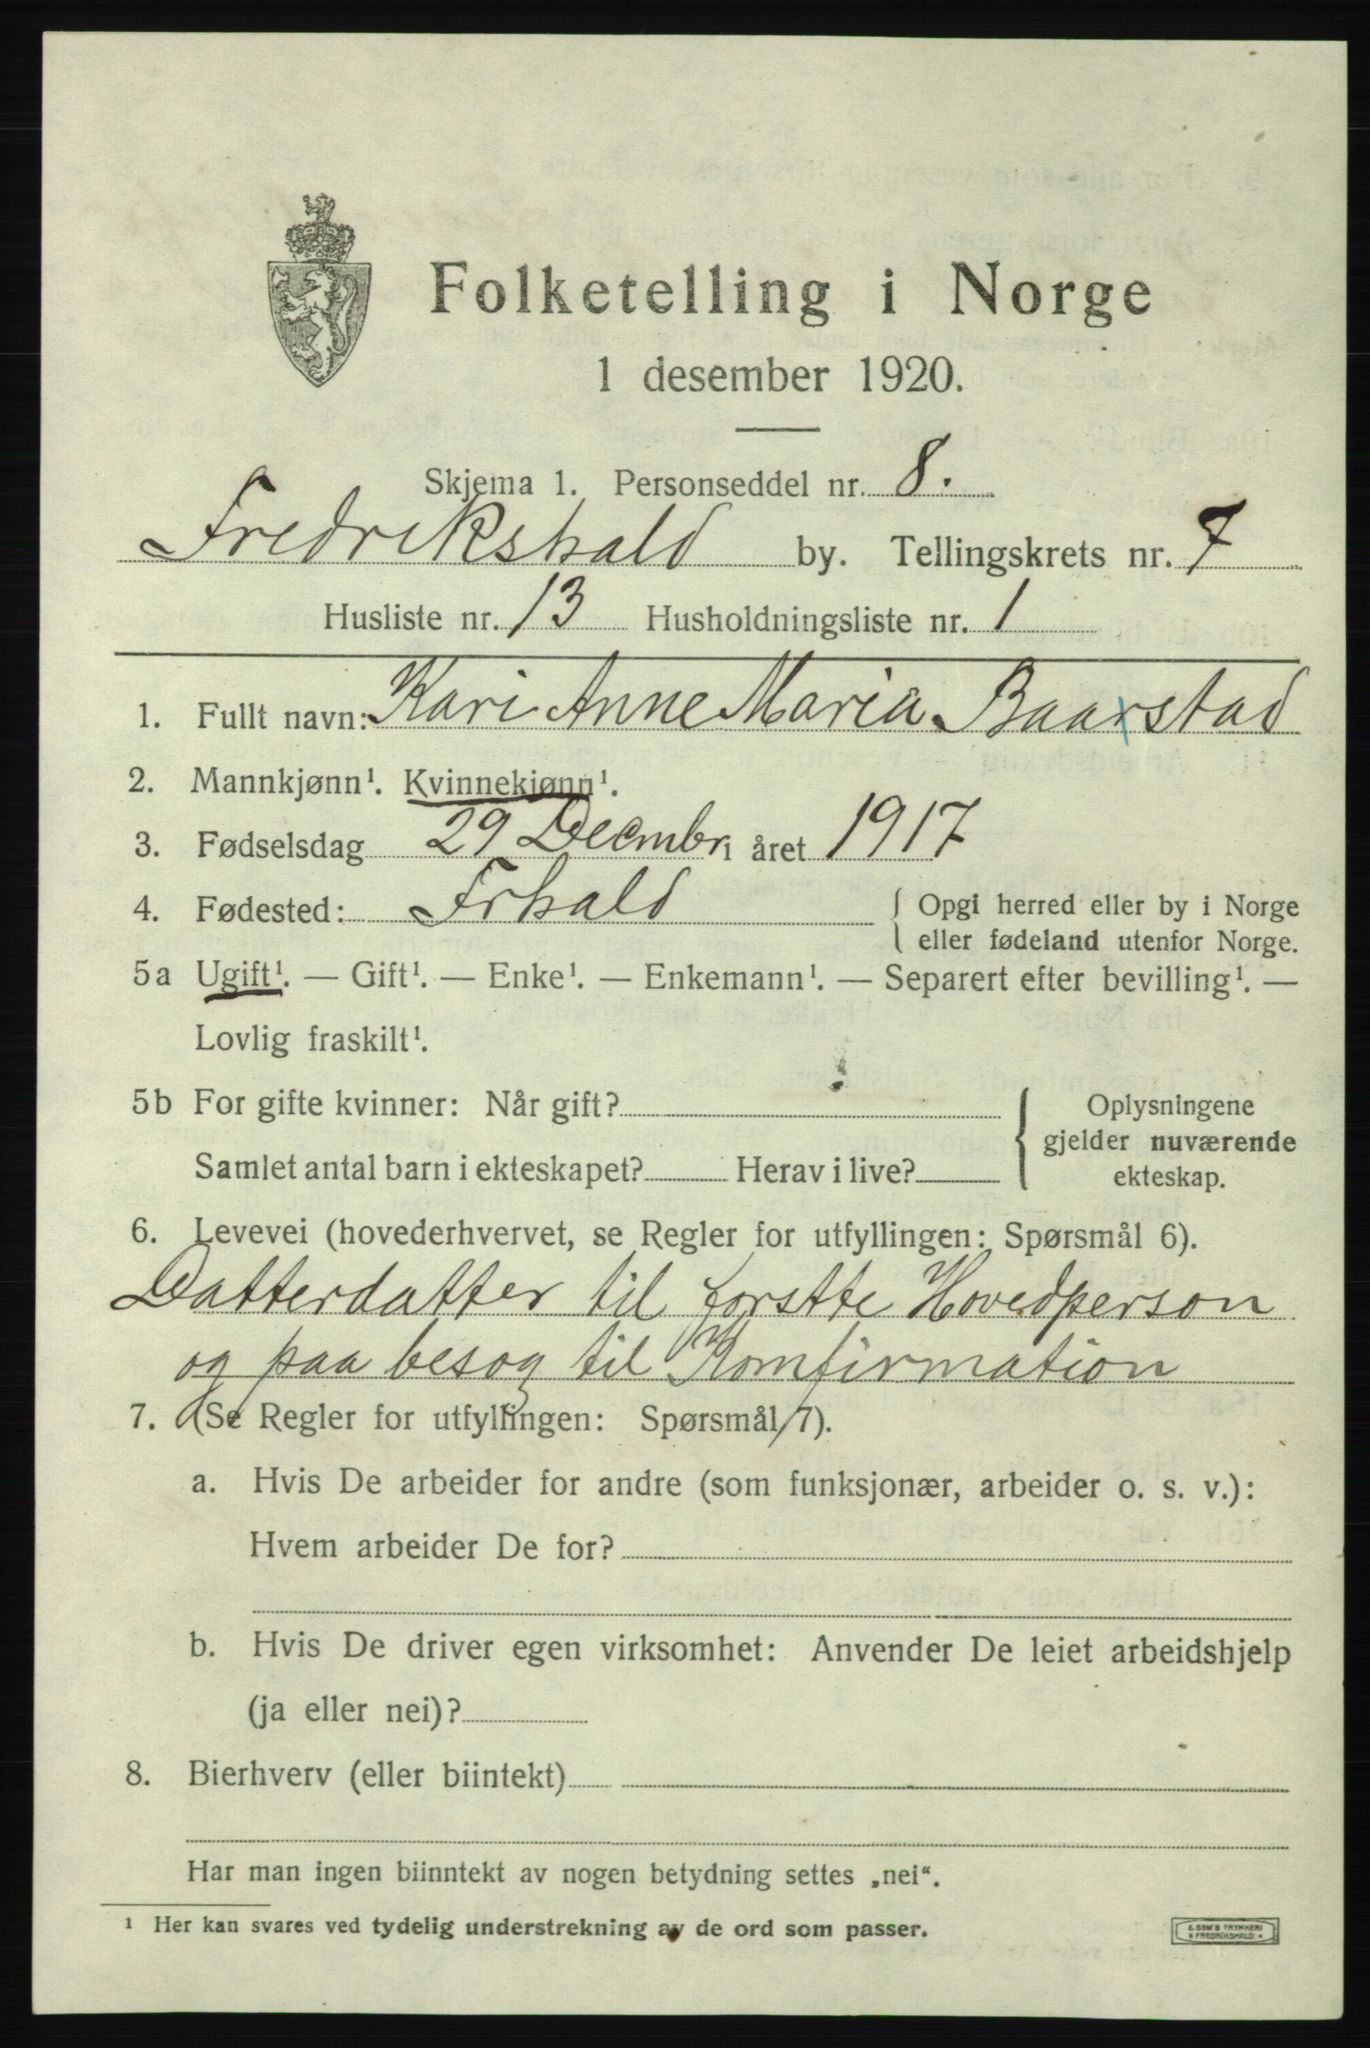 Folketelling i Norge
1 desember 1920.
Skjema 1. Personseddel nr. 8.
Fredrikshald by. Tellingskrets nr. 7
Husliste nr. 13 Husholdningsliste nr. 1
1. Fullt navn: Kari Anne Maria Baarstad
2. Mannkjønn¹. Kvinnekjønn¹.
3. Fødselsdag 29 Decmbr i året 1917
4. Fødested: Frhald { Opgi herred eller by i Norge
eller fødeland utenfor Norge.
5a Ugift¹. — Gift¹. — Enke¹. — Enkemann¹. — Separert efter bevilling¹. —
Lovlig fraskilt¹.
5b For gifte kvinner: Når gift?
Samlet antal barn i ekteskapet? Herav i live?
{ Oplysningene
gjelder nuværende
ekteskap.
6. Levevei (hovederhvervet, se Regler for utfyllingen: Spørsmål 6).
Datterdatter til forstte Hovedperson
og paa besog til Komfirmation
7. (Se Regler for utfyllingen: Spørsmål 7).
a. Hvis De arbeider for andre (som funksjonær, arbeider o. s. v.):
Hvem arbeider De for?
b. Hvis De driver egen virksomhet: Anvender De leiet arbeidshjelp
(ja eller nei)?
8. Bierhverv (eller biintekt)
Har man ingen biinntekt av nogen betydning settes „nei“.
¹ Her kan svares ved tydelig understrekning av de ord som passer.
E. SEM'S TRYKKERI
* FREDRIKSHALD *